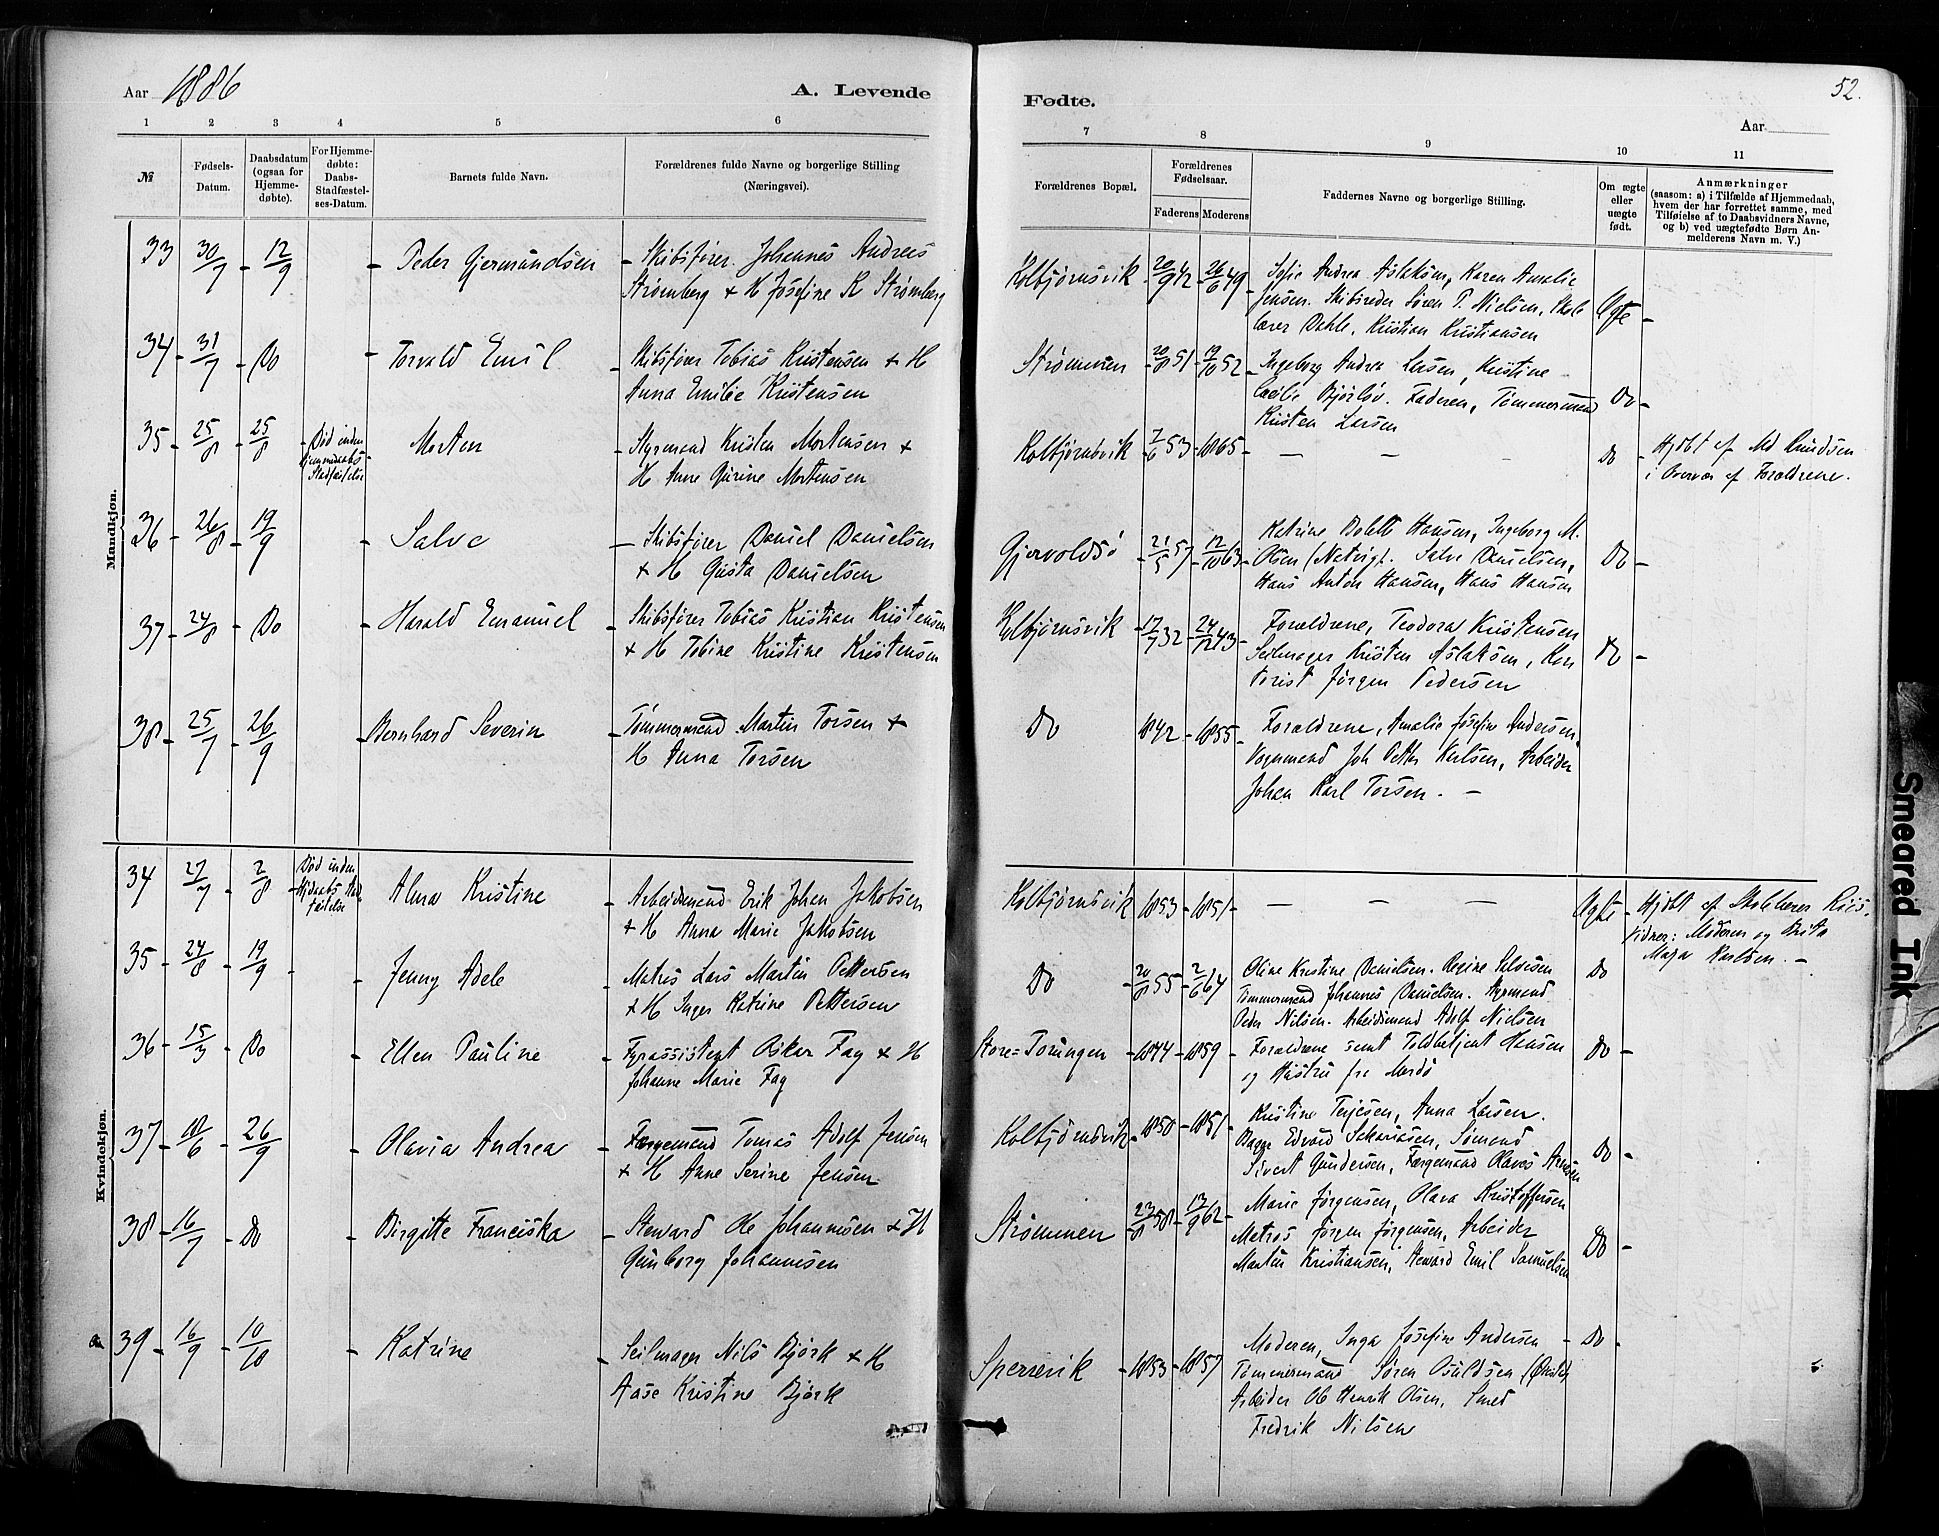 Aar 1886
A. Levende
Fødte.
52.
Aar
1 2 3 4 5 6 7 8 9 10 11
№
Fødsels-
Datum.
Daabsdatum
(ogsaa for
Hjemme-
døbte).
For Hjemme-
døbte:
Daabs-
Stadfæstel-
ses-Datum.
Barnets fulde Navn.
Forældrenes fulde Navne og borgerlige Stilling
(Næringsvei).
Forældrenes Bopæl.
Forældrenes
Fødselsaar.
Faderens Moderens
Faddernes Navne og borgerlige Stilling.
Om ægte
eller
uægte
født.
Anmærkninger
(saasom: a) i Tilfælde af Hjemmedaab,
hvem der har forrettet samme, med
Tilføielse af to Daabsvidners Navne,
og b) ved uægtefødte Børn An-
melderens Navn m. V.)
Mandkjøn.
33 30/7 - 12/9 - Peder Gjermundsen - Skibsfører Johannes Andreas
Strømberg & H Josefine K Strømberg
Kolbjørnsvik - 20/9 42 - 26/6 49 - Sofie Andrea Aslaksen, Karen Amalie
Jensen. Skibsreder Søren T. Nielsen, Skole
lærer Dahle, Kristian Kristiansen
Ægte -
34 - 31/7 - Do - Torvald Emil - Skibsfører Tobias Kristensen & H
Anna Emilie Kristensen
Strømmen - 20/8 51 - 19/10 52 - Ingeborg Andrea Larsen, Kristine
Cecilie Bjørløv. Faderen, Tømmermand
Kristen Larsen
Do -
35 - 25/8 - 25/8 - Død inden
Hjemmedaabs
Stadfæstelse
- Morten - Styrmand Kristen Mortensen &
H Anne Gurine Mortensen
Kolbjørnsvik - 7/6 53 - 1865 - — — - Do - Hjdbt af Md Knudsen
i Overvær af Forældrene.
36 - 26/8 - 19/9 - Salve - Skibsfører Daniel Danielsen
& H Gusta Danielsen
Gjervoldsø - 21/5 57 - 12/10 63 - Katrine Dolette Hansen, Ingeborg M.
Olsen (Natvigt. Salve Danielsen,
Hans Anton Hansen, Hans Hansen
Do -
37 - 24/8 - Do - Harald Emanuel - Skibsfører Tobias Kristian Kristensen
& H Tobine Kristine Kristensen
Kolbjørnsvik - 17/7 32 - 24/12 43 - Forældrene, Teodora Kristensen
Seilmager Kristen Aslaksen, Kon
torist Jørgen Pedersen
Do -
38 - 25/7 - 26/9 - Bernhard Severin - Tømmermand Martin Torsen &
H Anna Torsen
Do 1842 - 1855 - Forældrene, Amalie Josefine Andersen,
Vognmand Joh Petter Karlsen, Arbeider
Johan Karl Torsen. -
Kvindekjøn.
34 27/7 - 2/8 - Død inden
Hjdaabs Stad
fæstelse
- Alma Kristine - Arbeidsmand Erik Johan Jakobsen
& H Anna Marie Jakobsen
Kolbjørnsvik - 1853 - 1851 - — — — Ægte - Hjdbt af Skolelærer Riis.
Vidner: Moderen og Berta
Maja Karlsen. -
35 24/8 - 19/9 - - Jenny Adele - Matros Lars Martin Pettersen
& H Inger Katrine Pettersen
Do - 20/8 55 - 2/6 64 Oline Kristine Danielsen. Regine Salvesen
Tømmermand Johannes Danielsen. Styrmand
Peder Nilsen. Arbeidsmand Adolf Nielsen
Do
36 - 15/3 - Do - Ellen Pauline - Fyrassistent Oskar Fag & H
Johanne Marie Fag
Store=Torungen - 1844 - 1859 - Forældrene samt Toldbetjent Hansen
og Hustru fra Merdø
Do -
37 - 18/6 - 26/9 - Olavia Andrea - Færgemand Tomas Adolf Jensen
& H Anne Serine Jensen
Kolbjørnsvik - 1850 - 1851 - Kristine Terjesen, Anna Larsen.
Bagge Edvard Sakariasen, Sømand
Sivert Gundersen, Færgemand Olaves Arnesen
Do -
38 - 16/7 - Do - Birgitte Franciska - Steward Ole Johannesen & H
Gunborg Johannesen
Strømmen - 23/8 58 - 13/9 62 - Marie Jørgensen, Olava Kristoffersen
Matros Jørgen Jørgensen, Arbeider
Martin Kristiansen, Steward Emil Samuelsen
Do -
39 - 16/9 - 10/10 - Katrine - Seilmager Nils Bjørk & H
Aase Kristine Bjørk
Spervik - 1853 - 1857 - Moderen, Inga Josefine Andersen
Tømmermand Søren Osuldsen
Arbeider Ole Henrik Olsen, Smed
Fredrik Nilsen
- Do -
Smeared Ink